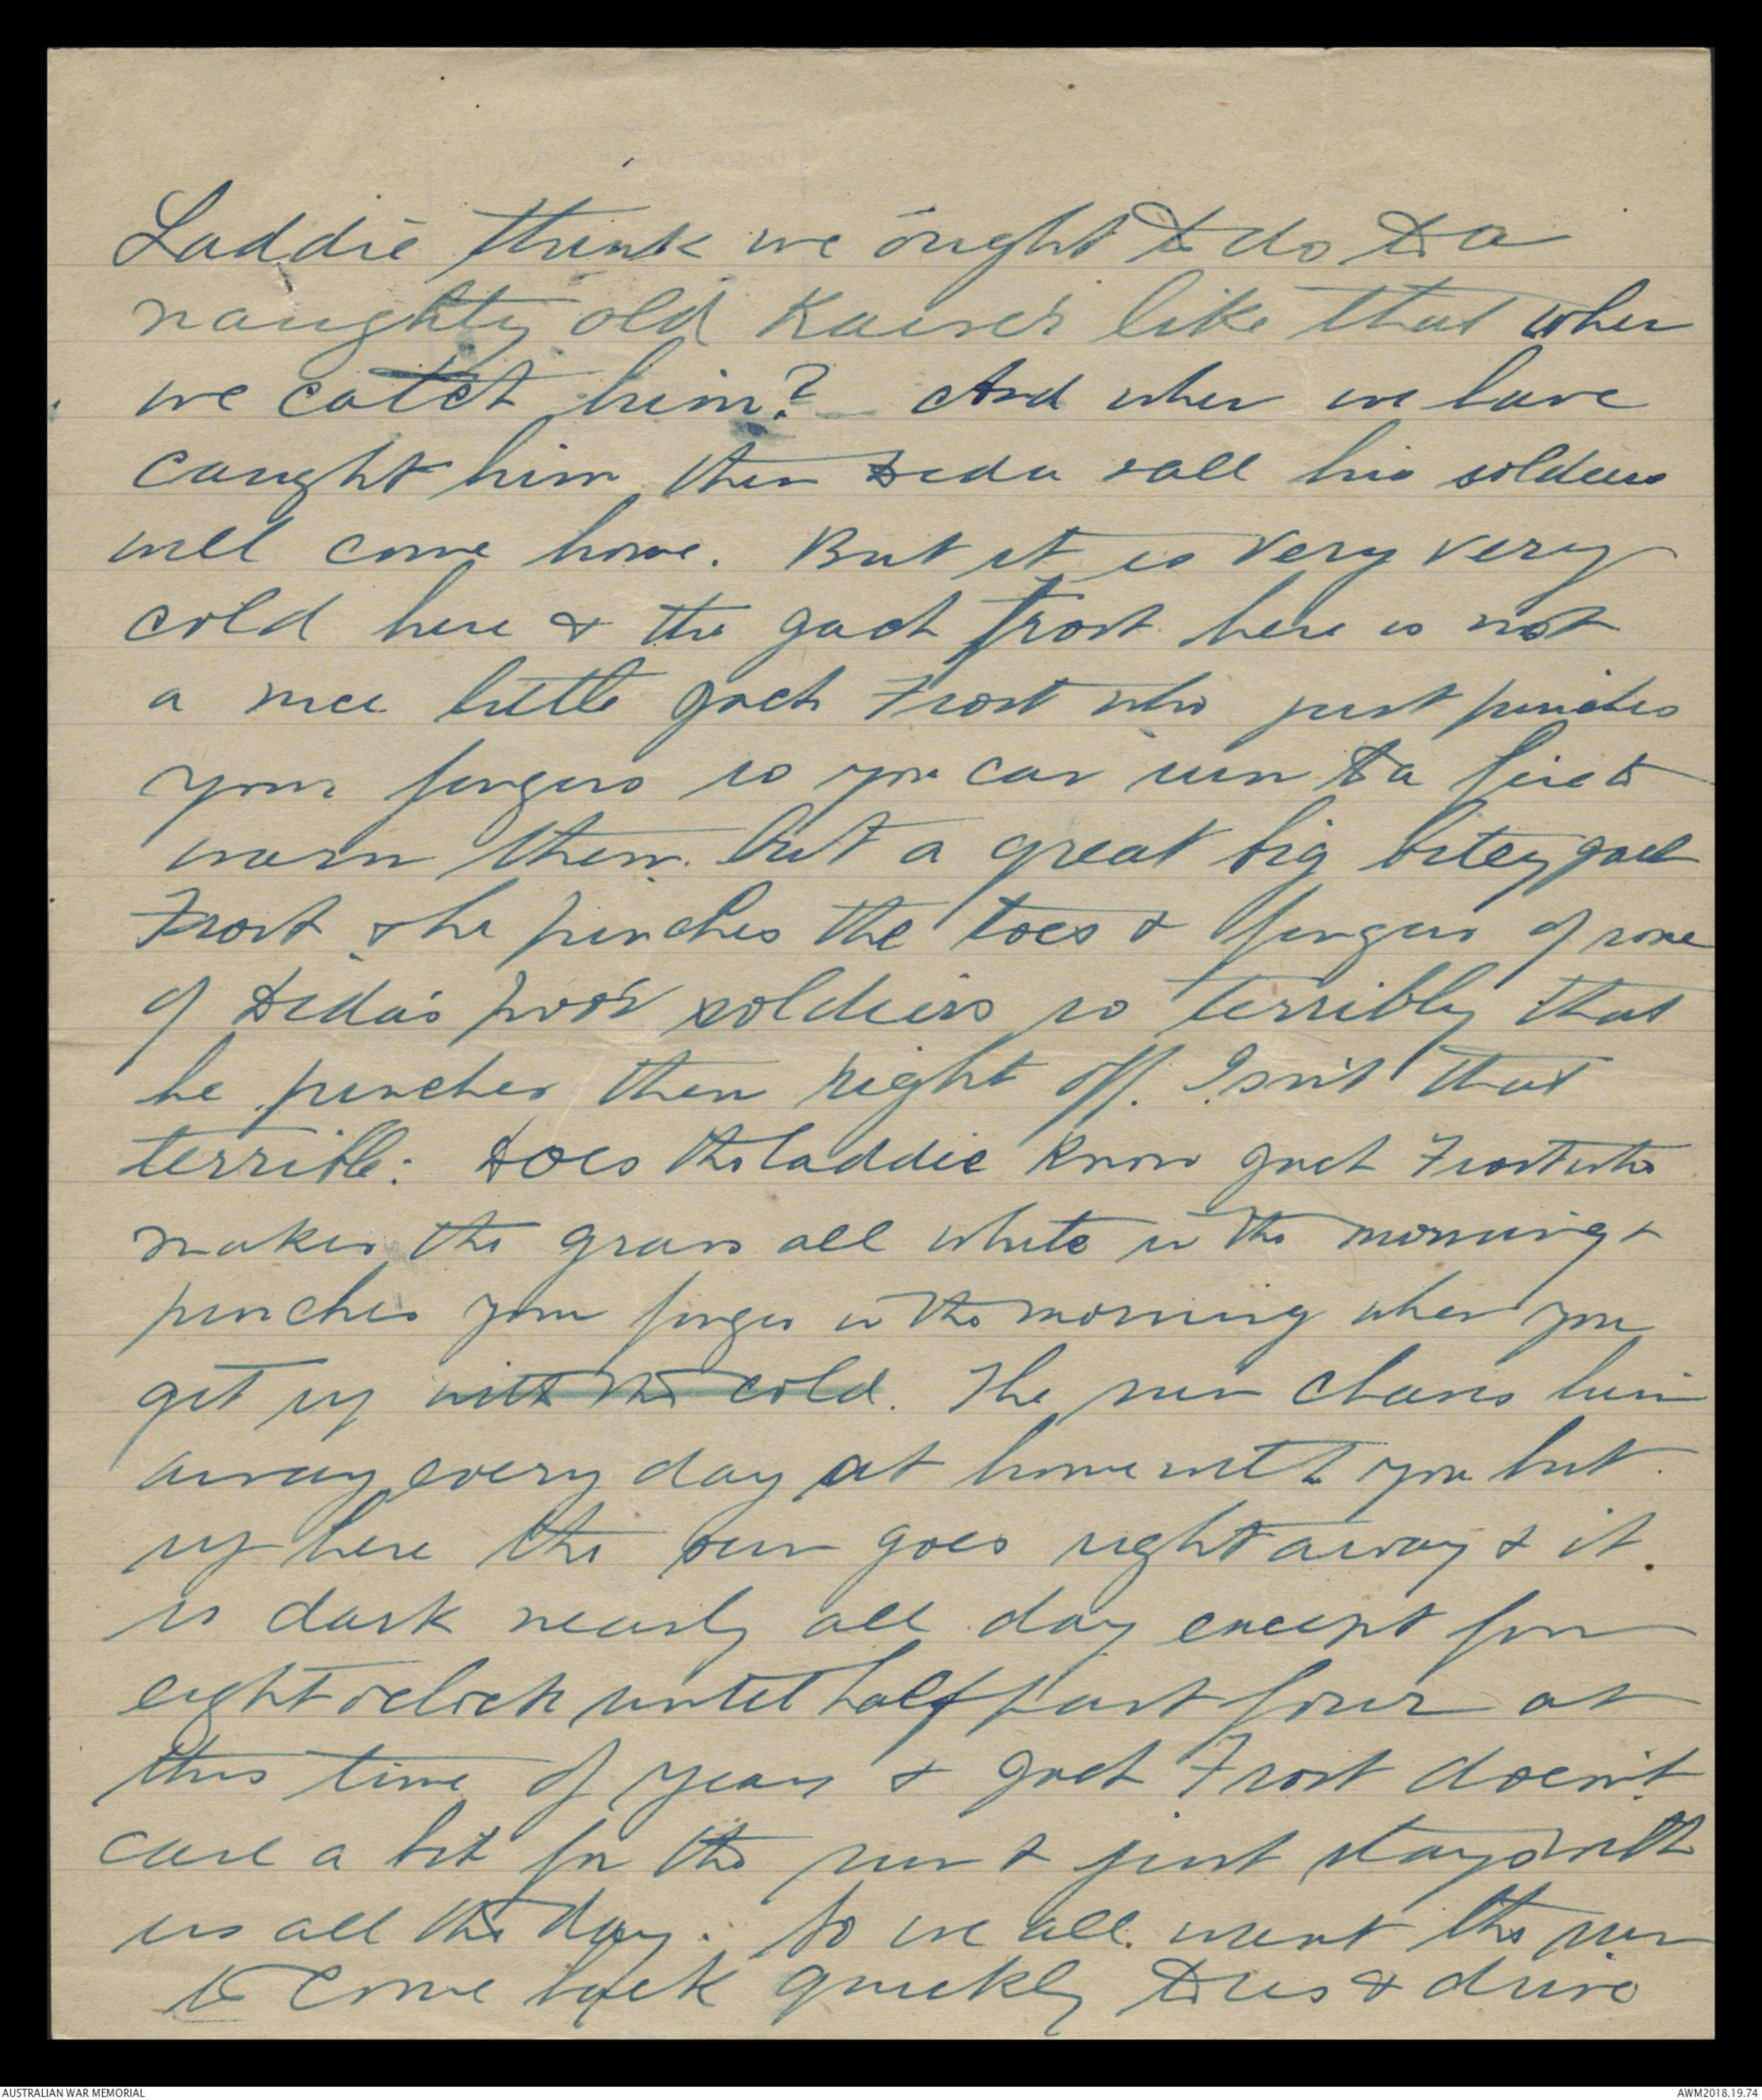 Laddie think we ought to do to a
naughty old Kaiser like that when
we catch him? And when we have
caught him then Dida & all his soldiers
will come home. But it is very very
cold here & the Jack Frost here is not
a nice little Jack Frost who just pinches
your fingers so you can run to a fire to
warm them but a great big bitey Jack
Frost & he pinches the toes & fingers of some
of Dida's poor soldiers so terribly that
he pinches them right off. Isn't that
terrible: Does the laddie know Jack Frost who
makes the grass all white in the morning &
pinches your finger in the morning when you
get up with the cold. The sun chases him
away every day at home with you but
up here the sun goes right away & it
is dark nearly all day except from
eight oclock until half past four at
this time of year & Jack Frost doesn't
care a bit for the sun & just stays with
us all the day. So we all want the sun
to come back quickly to us & drive
AUSTRALIAN WAR MEMORIAL
AWM2018.19.74